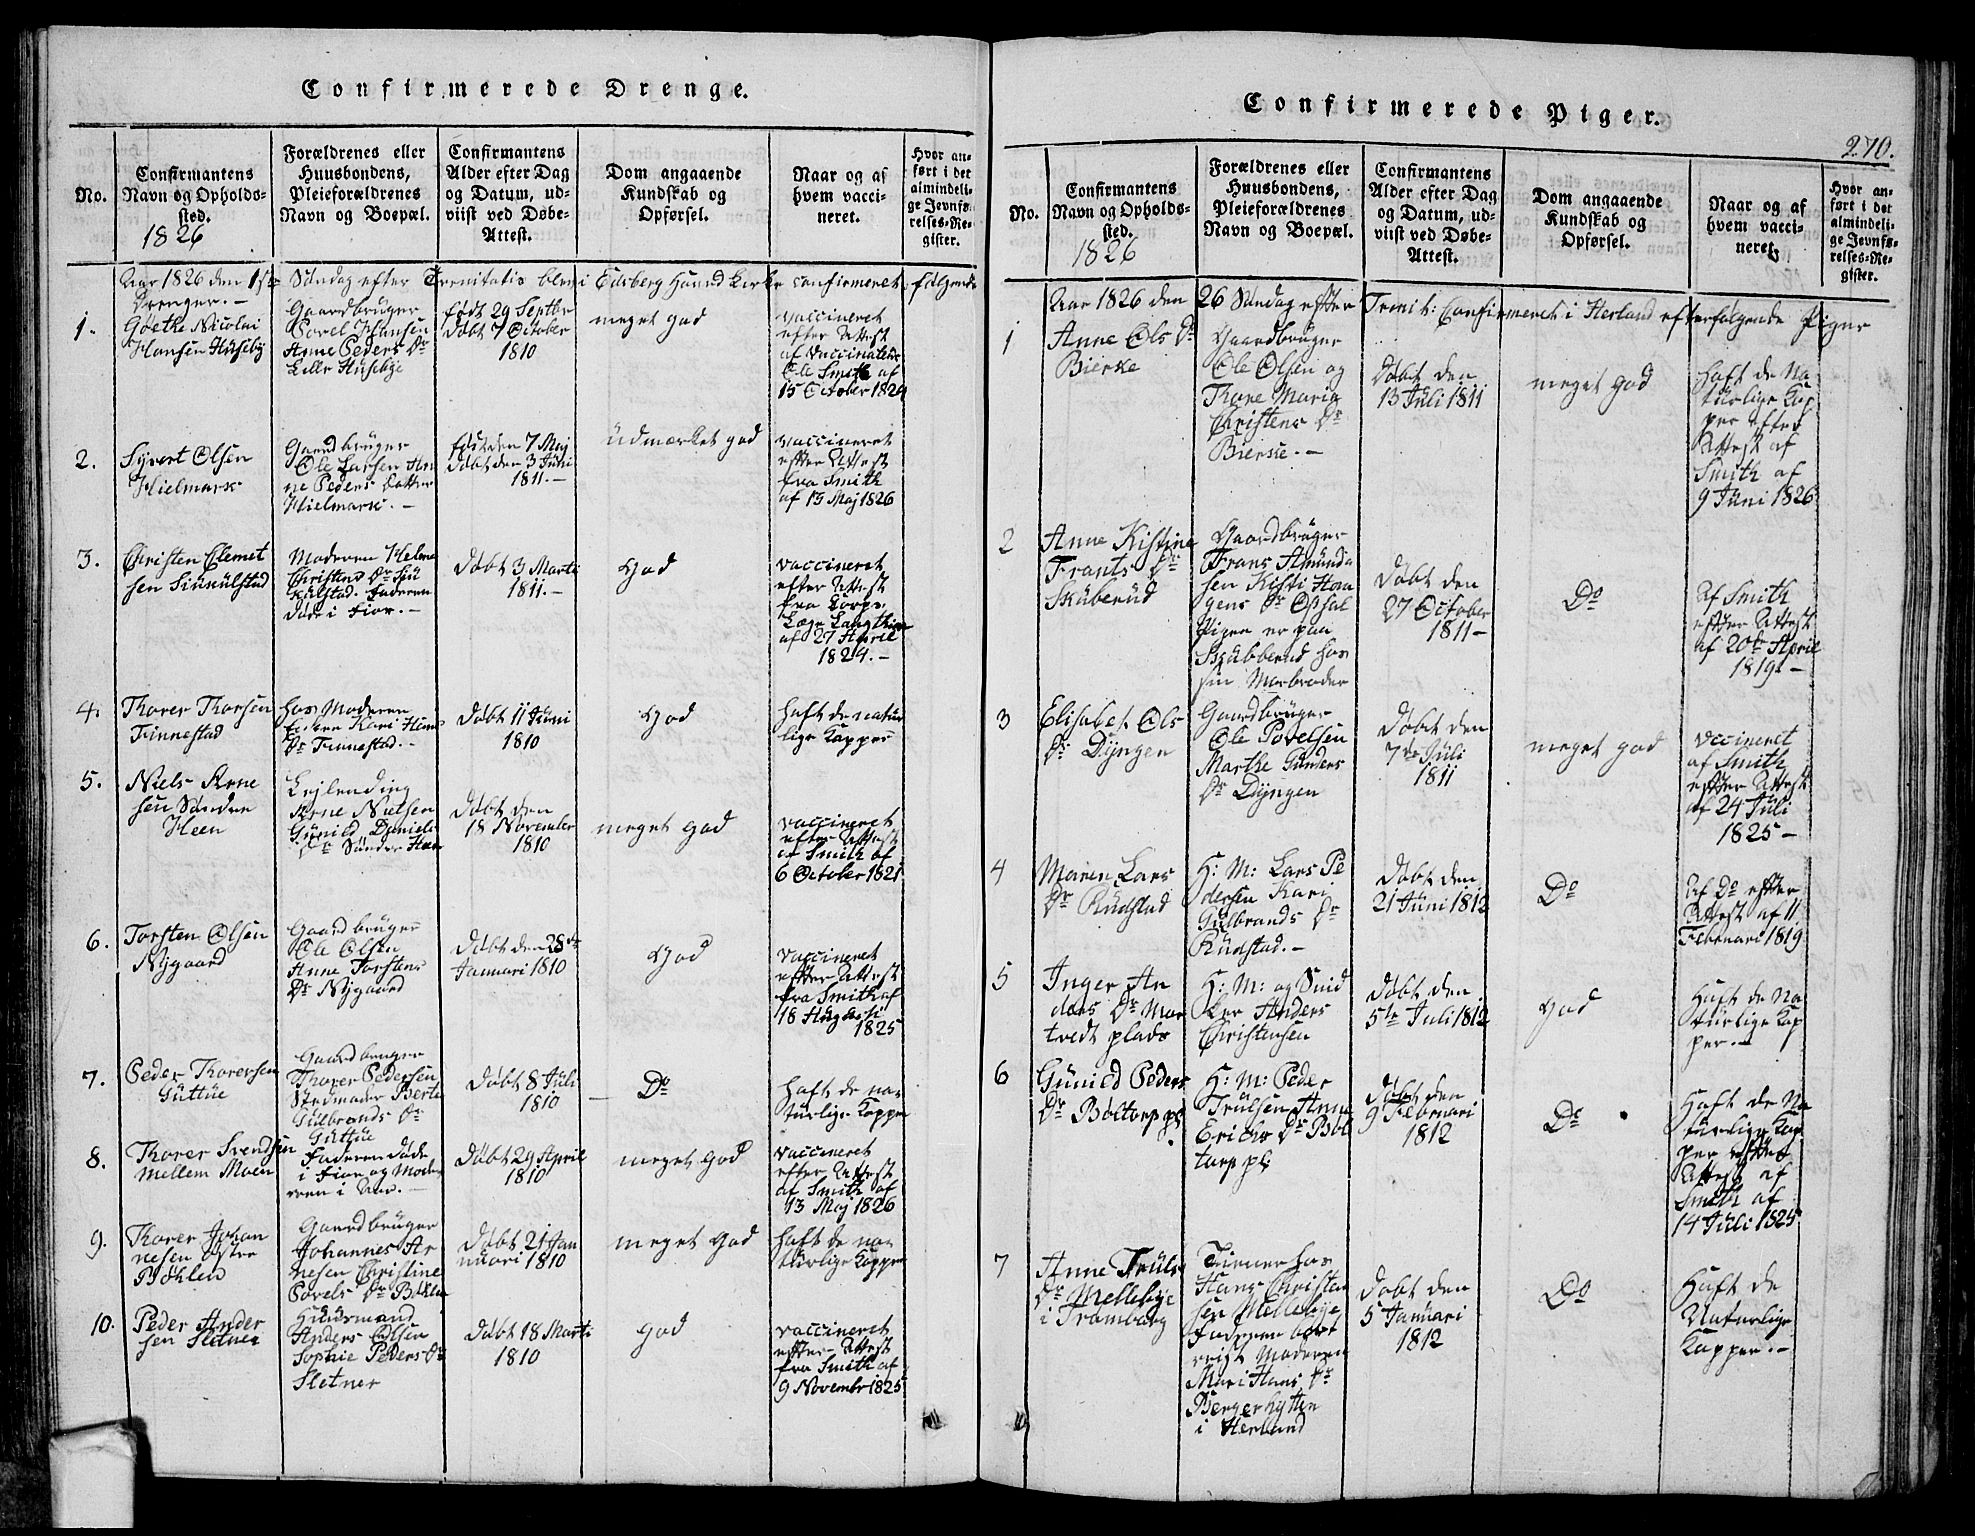 Confirmerede Drenge.
No.
Confirmantens
Navn og Opholds-
sted.
1826
Forældrenes eller
Huusbondens,
Pleieforældrenes
Navn og Boepæl.
Confirmantens
Alder efter Dag
og Datum, ud-
viist ved Døbe-
Attest.
Dom angaaende
Kundskab og
Opførsel.
Naar og af
hvem vacci-
neret.
Hvor an-
ført i det
almindeli-
ge Jevnfø-
relses-Re-
gister.
Aar 1826 den 1ste Søndag efter Trenitatis blev i Edsberg Hoved Kirke confirmeret følgende
Drenger. –
1.
Gøethe Nicolai
Hansen Huseby
Gaardbrüger
Povel Hansen
Anne Peders Dr
Lille Husebye
født 29 Septbr
døbt 7 October
1810
meget god
vaccineret
efter Attest
af vaccinatør
Ole Smith af
15 October 1824
2.
Syvert Olsen
Hielmark
Gaardbrüger
Ole Larsen An
ne Peders Datter
Hielmark. –
født den 7 Maj
døbt den 3 Juni
1811. –
Udmærket god
vaccineret
efter Attest
fra Smith
af 15 Maj 1826
3.
Christen Clemet
sen
Moderen Helene
Christens Dr
Faderen
døde i Fior. –
Døbt 3 Marti
1811. –
God
vaccineret
efter Attest
fra Corps
Læge
af 27 April
1824. –
4.
Thorer Thorsen
Finnestad
hos Moderen
Enken Kari Hans
Dr Finnestad. –
Døbt 11 Jüni
1810
God
haft de natur
lige Kopper
5.
Niels Arne
sen Søndre
Heen
Lejlending
Arne Nielsen
Günild Daniels
Dr Søndre Heen
Døbt den
18 November
1810
meget god
vaccineret
efter Attest
af Smith af
6 October 1821
6.
Torsten Olsen
Nygaard
Gaardbrüger
Ole Olsen
Anne Torstens
Dr Nygaard
Døbt den 28de
Januari 1810
God
vaccineret
efter Attest
fra Smith af
18 Augusti
1825
7.
Peder Thorersen
Güttüe
Gaardbruger
Thorer Pedersen
Stedmoder Berte
Gülbrands Dr
Güttüe
Døbt 8 Juli
1810
Do
haft de na-
türlige Kopper
8.
Thorer Svendsen
Mellem Moen
Faderen døde
i Fior og Mode-
ren i Aar. –
Døbt 29 April
1810
meget God
vaccineret
efter Attest
af Smith af
13 Maj 1826
9.
Thorer Johan
nesen Østre
Bøhlen
Gaardbrüger
Johannes Ar
nesen Christine
Povels Dr Bøhlen
Døbt 21 Jan
nuari 1810
meget God
haft de na-
turlige Kopper
10.
Peder Ander
sen Sletner
Huusmand
Anders Olsen
Sophie Peders Dr
Sletner
Døbt 18 Marti
1810
god
vaccineret
efter Attest
fra Smith af
9 Novembr 1825
Confirmerede Piger.
270.
No.
Confirmantens
Navn og Opholds-
sted.
1826
Forældrenes eller
Huusbondens,
Pleieforældrenes
Navn og Boepæl.
Confirmantens
Alder efter Dag
og Datum, ud-
viist ved Døbe-
Attest.
Dom angaaende
Kundskab og
Opførsel.
Naar og af
hvem vacci-
neret.
Hvor an-
ført i det
almindeli-
ge Jevnfø-
relses-Re-
gister.
Aar 1826 den 26 Søndag efter Trenit: Confirmeret i Herland efterfølgende Piger
1
Anne Ols Dr
Bierke
Gaardbrüger
Ole Olsen og
Thore Maria
Christens Dr
Bierke. –
Døbt den
13 Juli 1811
meget god
haft de Na
türlige Kop
per efter
Attest af
Smith af
9 Jüni 1826
2
Anne Kistine
Frants Dr
Sküberud
Gaardbrüger
Frans Amünd
sen Kisti Haa
gens Dr Opsal
Pigen er paa
Skubberud hos
sin Morbroder
Døbt den
27 October
1811 –
Do
Af Smith
efter Attest
af 20de April
1819. –
3
Elisabet Ols
Dr Dyngen
Gaardbrüger
Ole Povelsen
Marthe Günders
Dr Dyngen
Døbt den
7de Juli
1811
meget god
vccineret
af Smith
efter Attest
af 24 Juli
1825 –
4
Maren Lars
Dr Rüdstad
H: M: Lars Pe
dersen Kari
Gülbrands Dr
Rüdstad. –
Døbt den
21 Jüni 1812
Do
Af Do efter
Attest af 11
Februari 1819
5
Inger An
ders Dr Mor
tvedt plads
H: M: og Snid
ker Anders
Christensen
Døbt den
5te Juli 1812
god
Haft de Na
türlige Kop
per. –
6
Günild Peders
Dr Böltorp pl.
H: M: Peder
Trülsen Anne
Erichs Dr Böl
torp pl.
Døbt den
9 Februari
1812
Do
Haft de Na
türlige Kop
per efter
Attest af
Smith af
14 Juli 1825
7
Anne Trüls
Dr Mellebye
i Tramborg
Tiener hos
Hans Christen
sen Mellebye
Faderen bort
reist Moderen
Mari Hans Dr
Bergerhytten
i Herland
Døbt den
5 Januari
1812
Do
Haft de
Naturlige
Kopper. –